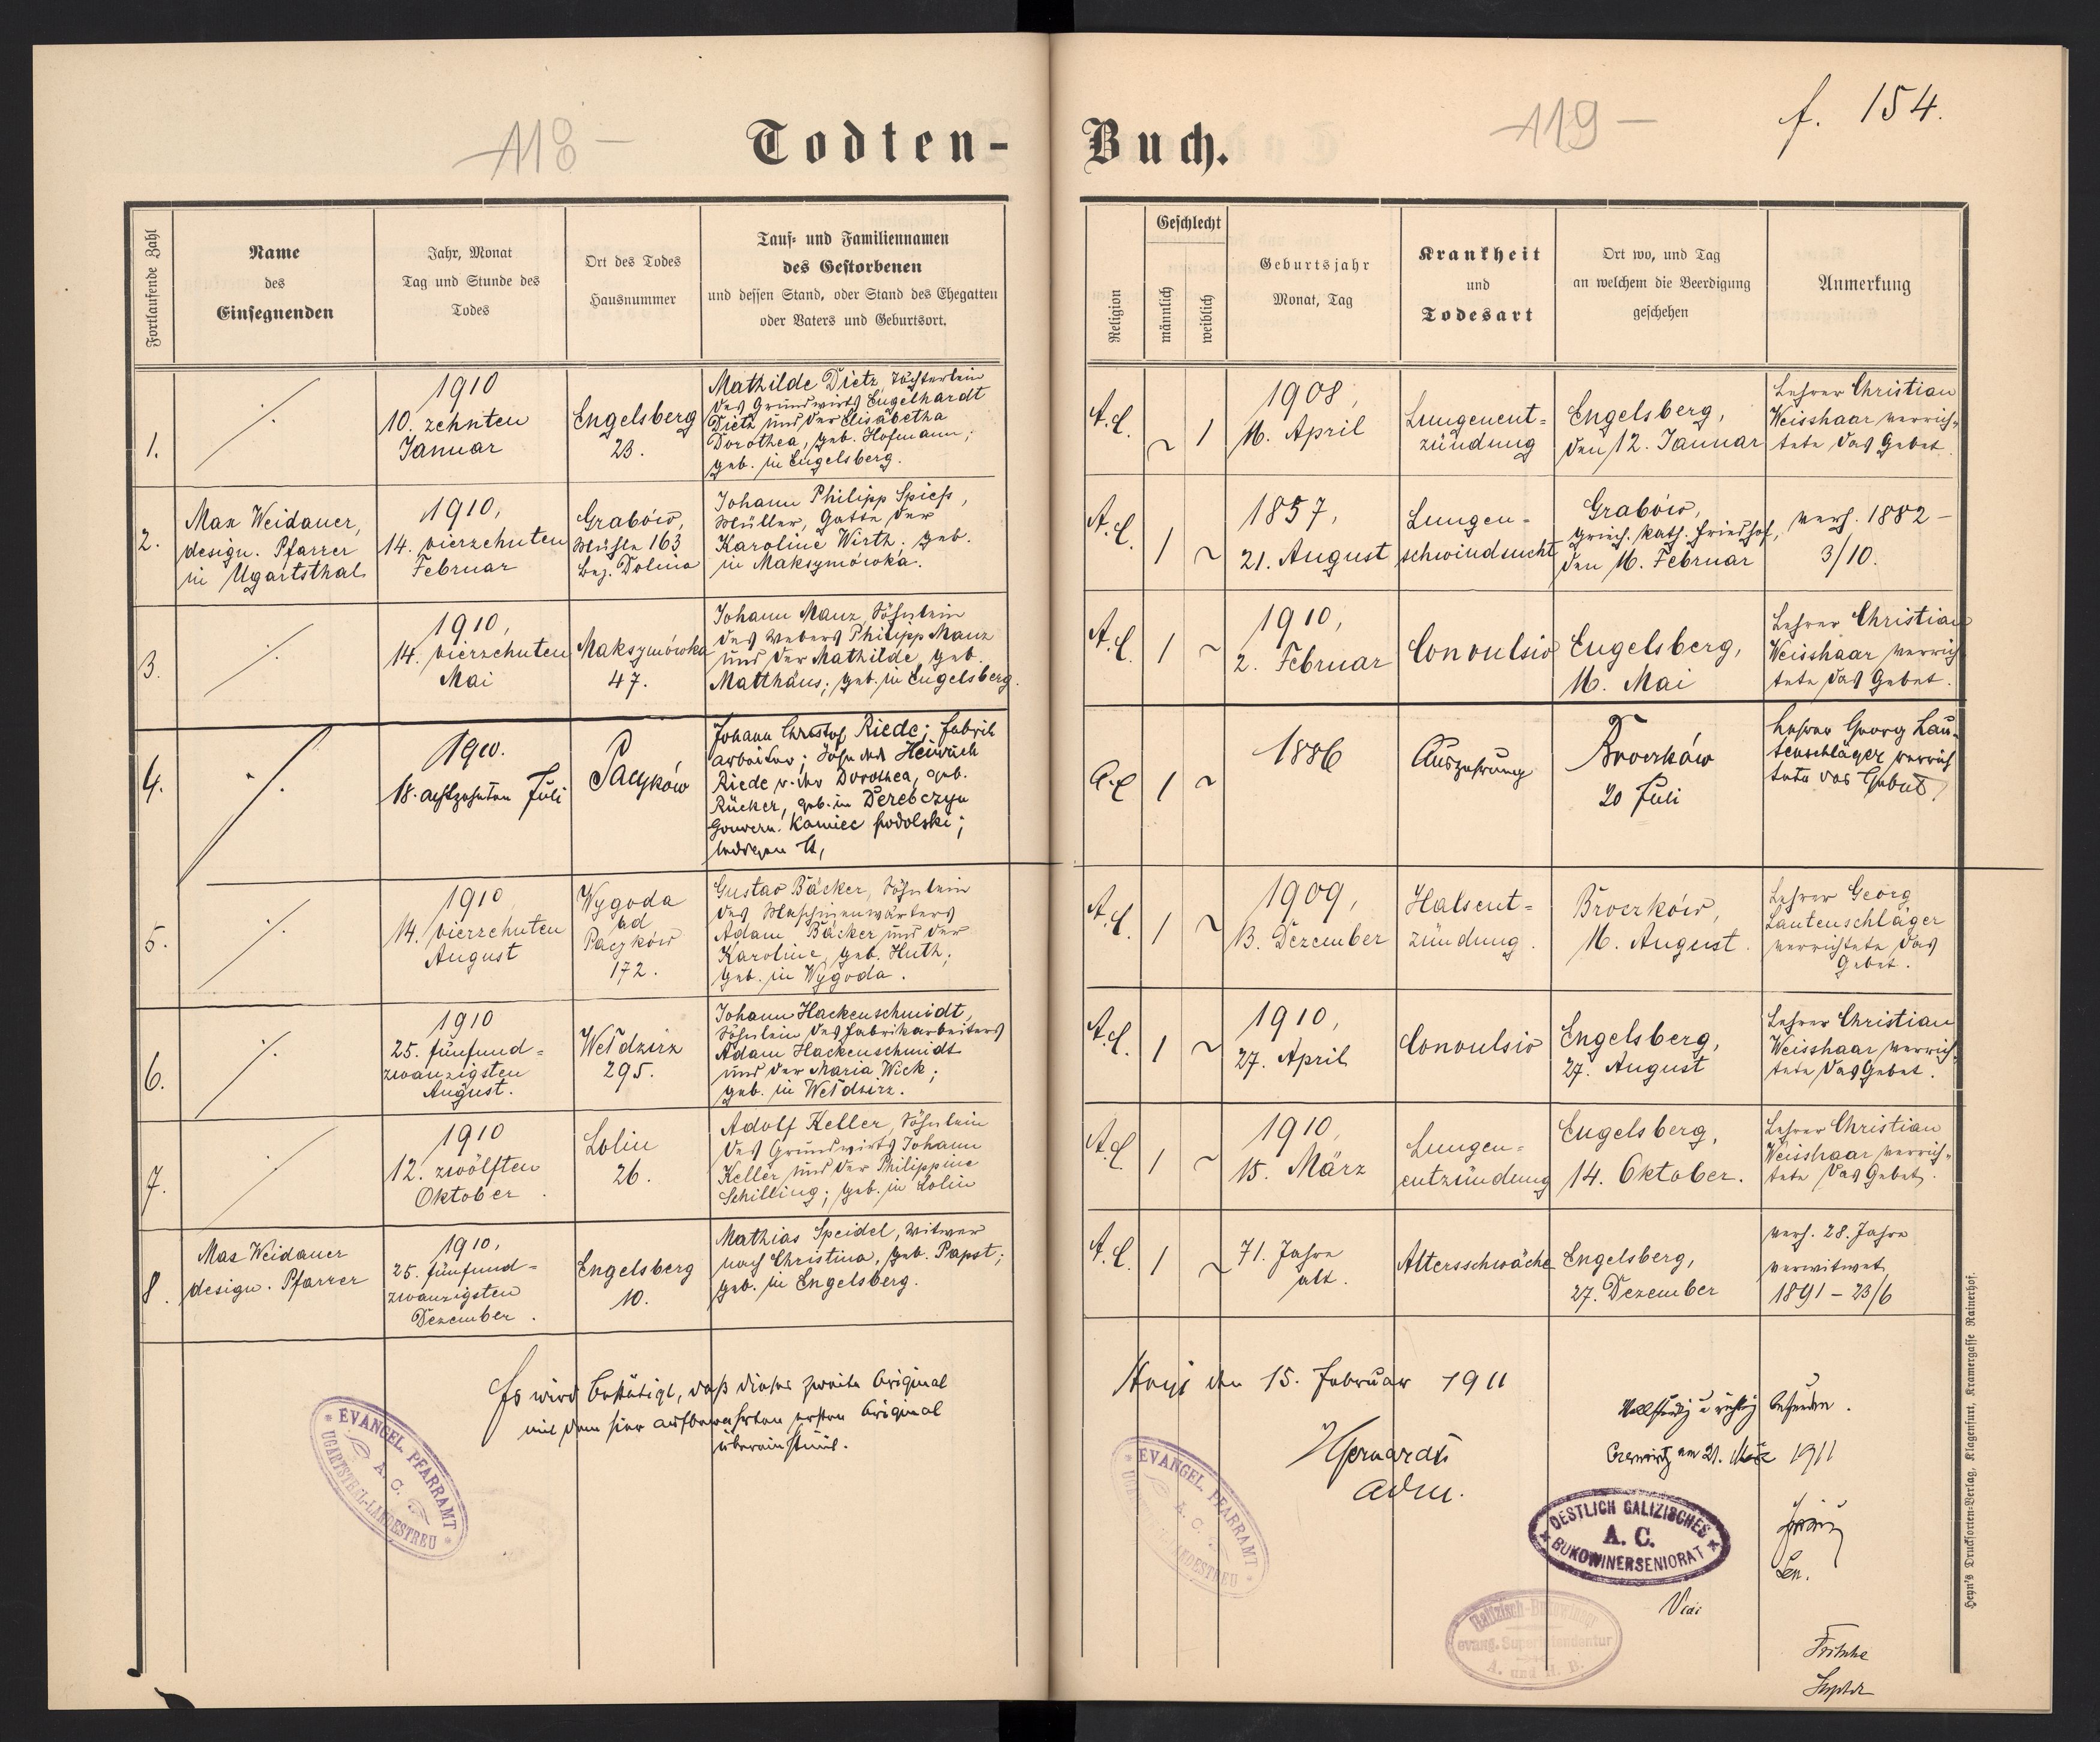 118
Todten-
Fortlaufende Zahl
Name
des
Einsegnenden
Jahr, Monat
Tag und Stunde des
Todes
Ort des Todes
Hausnummer
Tauf- und Familiennamen
des Gestorbenen
und dessen Stand, oder Stand des Ehegatten
oder Vaters und Geburtsort.
1.
1910
10. zehnten
Januar
Engelsberg
23.
Mathilde Dietz, Töchterlein
des Grundwirts Engelhardt
Dietz und der Elisabetha
Dorothea, geb. Hofmann;
geb. in Engelsberg.
2.
Max Weidauer,
design. Pfarrer
in Ugartsthal
1910,
14. vierzehnten
Februar
Grabów,
Mühle 163
Bez. Dolina
Johann Philipp Spiess,
Müller, Gatte der
Karoline Wirth; geb.
in Maksymówka.
3.
1910,
14. vierzehnten
Mai
Maksymówka
47.
Johann Manz, Söhnlein
des Webers Philipp Manz
und der Mathilde, geb.
Matthäus; geb. in Engelsberg.
4.
1910.
18. achtzehnten Juli
Pacyków
Johann Christof Riede; Fabrik
arbeiter; Sohn des Heinrich
Riede u. der Dorothea, geb.
Rücker, geb. in Derebczyn
Gouvern. Kamiec podolski;
5.
1910
14. vierzehnten
August
Wygoda
ad
Paczków
172.
Gustav Bäcker, Söhnlein
des Maschinenwärters
Adam Bäcker und der
Karoline, geb. Huth;
geb. in Wygoda.
6.
1910
25. fünfund-
zwanzigsten
August.
Wełdzirz
295.
Johann Hackenschmidt,
Söhnlein des Fabrikarbeiters
Adam Hackenschmidt
und der Maria Wick;
geb. in Wełdzirz.
7.
1910
12. zwölften
Oktober
Lolin
26.
Adolf Keller, Söhnlein
des Grundwirts Johann
Keller und der Philippine
Schilling; geb. in Lolin
8.
Max Weidauer
design. Pfarrer
1910,
25. fünfund-
zwanzigsten
Dezember.
Engelsberg
10.
Mathias Speidel, Witwer
nach Christina, geb. Papst;
geb. in Engelsberg.
Es wird bestätigt, daß dieses zweite Original
mit dem hier aufbewahrten ersten Original
übereinstimt.
EVANGEL. PFARRAMT
A. C.
UGARTSTHAL-LANDESTREU
119
f. 154.
Buch.
Religion
Geschlecht
männlich
weiblich
Geburtsjahr
Monat, Tag
Krankheit
und
Todesart
Ort wo, und Tag
an welchem die Beerdigung
geschehen
Anmerkung
A.C.
~
1
1908,
16. April
Lungenent-
zündung
Engelsberg,
den 12. Januar
Lehrer Christian
Weisshaar verrich-
tete das Gebet.
A.C.
1
~
1857,
21. August
Lungen-
schwindsucht
Grabów,
griech. kath. Friedhof,
den 16. Februar
verh. 1882 –
3/10.
A.C.
1
~
1910,
2. Februar
Convulsio
Engelsberg,
16. Mai
Lehrer Christian
Weisshaar verrich
tete das Gebet.
A.C
1
~
1886
Auszehrung
Broczków
20 Juli
Lehrer Georg Lau-
tenschläger verrich
tete das Gebet
A.C.
1
~
1909,
13. Dezember
Halsent-
zündung.
Broczków,
16. August.
Lehrer Georg
Lautenschläger
verrichtete das
Gebet.
A.C.
1
~
1910,
27. April
Convulsio
Engelsberg,
27. August
Lehrer Christian
Weisshaar verrich-
tete das Gebet.
A.C.
1
~
1910,
15. März
Lungen-
entzündung
Engelsberg,
14. Oktober.
Lehrer Christian
Weisshaar verrich-
tete das Gebet.
A.C.
1
~
71. Jahre
alt.
Altersschwäche
Engelsberg,
27. Dezember
verh. 28. Jahre
verwitwet
1891 – 23/6
den 15. Februar 1911
Adm.
EVANGEL. PFARRAMT
A. C.
LANDESTREU
Vollständig u richtig befunden.
Czernowitz am 21. März 1911
OESTLICH GALIZISCHES
A. C.
BUKOWINERSENIORAT
Sen.
Vidi
Galizisch-Bukowiner
evang. Superintendentur
A. und H. B.
Fritsche
Supdt
Heyn's Drucksorten-Verlag, Klagenfurt, Kramergasse Rainerhof.